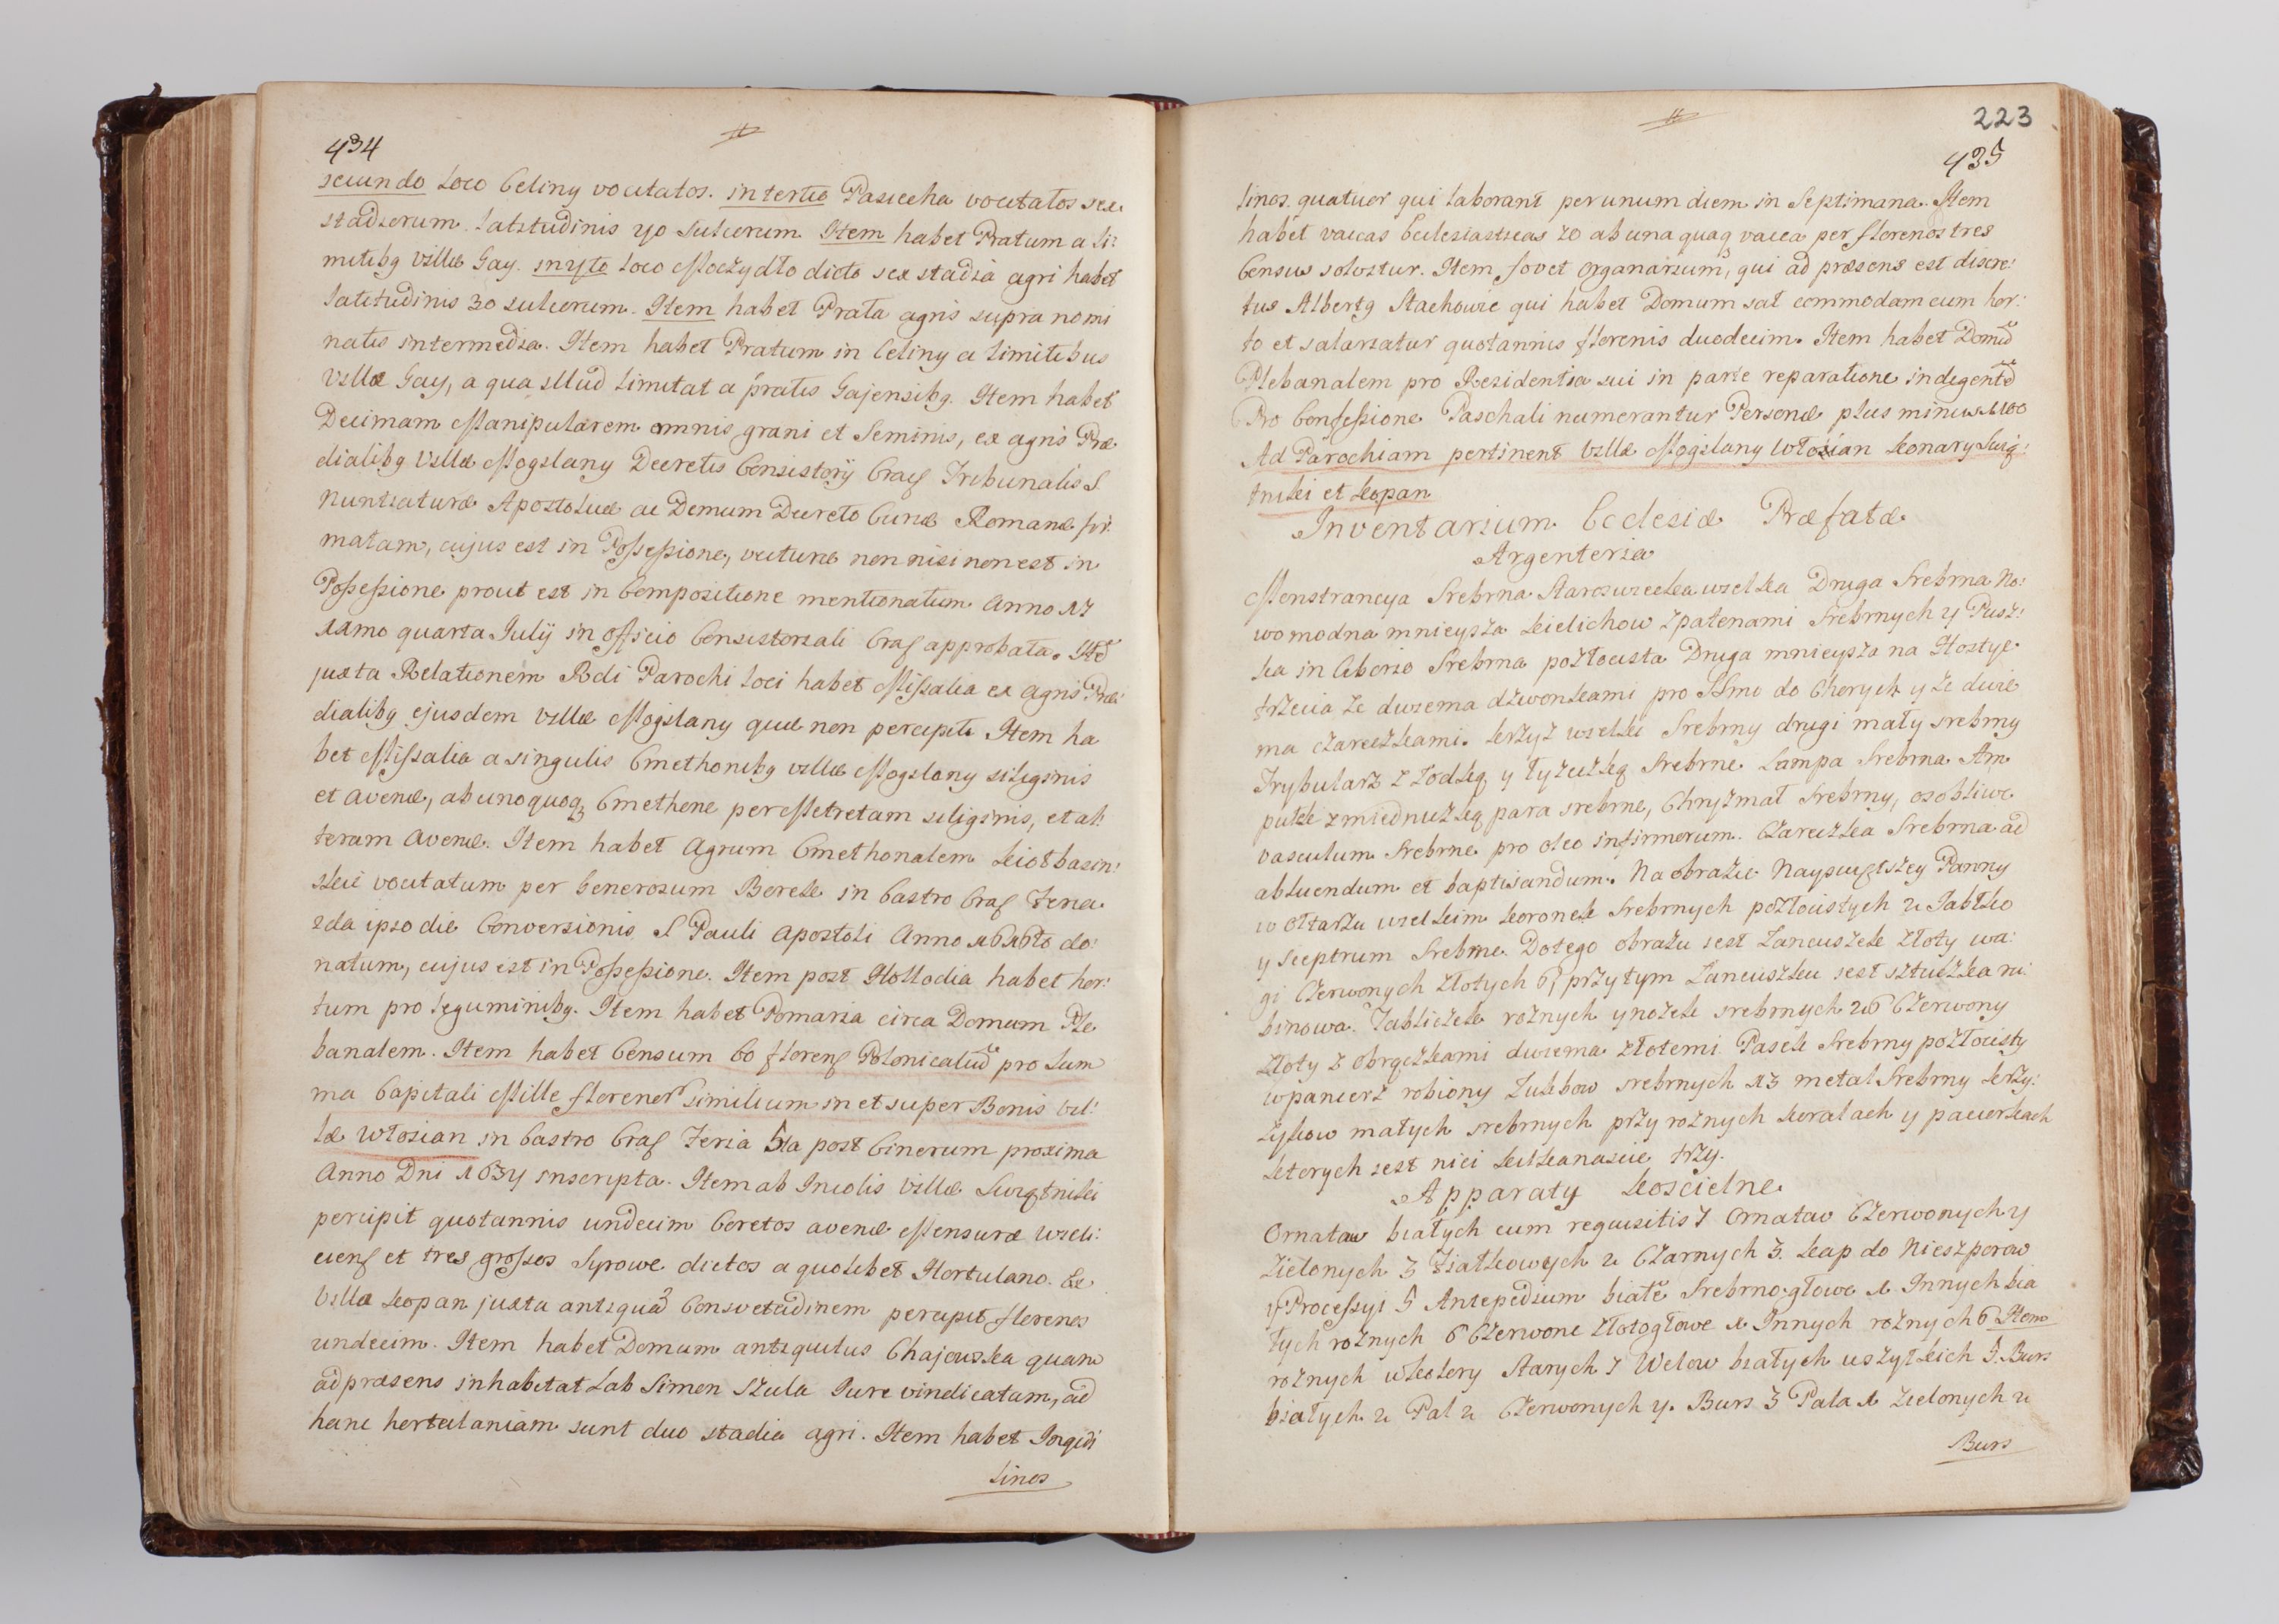 434
secundo Loco Celiny vocitatos. in tertio Pasiecka vocitatos sex
stadiorum. latitudinis 40 sulcorum. Item habet Pratum a li:
mitibg villæ Gay. in 4to loco Moczydło dicto sex stadia agri habet
latitudinis 30 sulcorum. Item habet Prata agris supra nomi
natis intermedia. Item habet Pratum in Celiny a limitibus
Villæ Gay, a qua illud limitat a pratis Gajensibg. Item habet
Decimam Manipularem omnis grani et Seminis, ex agris Præ
dialibg Villæ Mogilany Decretis Consistorij Crac Tribunalis S.
Nuntiaturæ Apostolicæ ac Demum Decreto Curiæ Romanæ fir:
matam, cujus est in Possessione, non nisi non est in
Possessione prout est in Compositione mentionatum Anno 17
11mo quarta Julij in officio Consistoriali Crac approbata. Itē
juxta Relationem Rdi Parochi loci habet Missalia ex agris Præ:
dialibg ejusdem villæ Mogilany quæ non percipit. Item ha
bet Missalia a singulis Cmethonibg villæ Mogilany siliginis
et avenæ, ab unoquoq Cmethone per Metretam siliginis, et al:
teram avenæ. Item habet Agrum Cmethonalem Kiołbasin:
skie vocitatum per Generosum Berek in Castro Crac Feria
2da ipso die Conversionis S Pauli Apostoli Anno 1616to do:
natum, cujus est in Possessione. Item post Hollodia habet hor:
tum pro leguminibg. Item habet Pomaria circa Domum Ple
banalem. Item habet Censum 60 floren Polonicaliū pro Sum
ma Capitali Mille florenor similium in et super Bonis Vil:
læ Włosian in Castro Crac Feria 5ta post Cinerum proxima
Anno Dni 1634 inscripta. Item ab Incolis Villæ Swiątniki
percipit quotannis undecim Coretos avenæ Mensuræ Wieli:
cien et tres grossos Sypowe dictos a quolibet Hortulano. Ex
Villa Kopan juxta antiquā Consvetudinem percipit florenos
undecim. Item habet Domum antiquitus Chajowska quam
ad præsens inhabitat Lab Simon Szula Iure vindicatam, ad
hanc hortulaniam sunt duo stadia agri. Item habet Inqui
linos
223
435
linos. quatuor qui laborant per unum diem in Septimana. Item
habet vaccas Ecclesiasticas 20 ab una quaq vacca per florenos tres
Census solvitur. Item fovet organarium, qui ad præsens est discre:
tus Albertg Stachowic qui habet Domum sat commodam cum hor:
to et salariatur quotannis florenis duodecim. Item habet Domū
Plebanalem pro Residentia sui in parte reparatione indigentē
Pro Confessione Paschali numerantur Personæ plus minus 1100
Ad Parochiam pertinent Villæ Mogilany Włosian Konary Swią:
tniki et Kopan
Inventarium Ecclesiæ Præfatæ
Argenteria
Monstrancya Srebrna Staroswiecka wielka Druga Srebrna No:
womodna mnieysza Kielichow z patenami Srebrnych 4 Pusz:
ka in Ciborio Srebrna pozłocista Druga mnieysza na Hostye
trzecia ze dwiema dzwonkami pro SSmo do Chorych y ze dwie
ma czareczkami. krzyz wielki Srebrny drugi mały srebrny
Trybularz z Łodką y łyzużką Srebrne Lampa Srebrna Am
pułki z miednuzką para srebrne, Chryzmał Srebrny, osobliwe
vasculum Srebrne pro oleo infirmorum. Czareczka Srebrna ad
abluendum et baptisandum. Na obrazie Nayswiętszey Panny
w ołtarzu wielkim koronek Srebrnych pozłocistych 2 Jabłko
y Sceptrum Srebrne. Do tego obrazu iest Łancuszek złoty wa:
gi Czerwonych złotych 6, przy tym Łancuszku iest sztuczka ru:
binowa. Tabliczek roznych y nozek srebrnych 26 Czerwony
złoty z obrączkami dwiema złotemi Pasek Srebrny pozłocisty
w pancerz robiony Zubkow srebrnych 13 metal Srebrny krzy:
zykow małych srebrnych przy roznych koralach y pacierkach
ktorych iest nici kilkanascie trzy.
Apparaty koscielne
Ornatow białych cum requisitis 7 Ornatow Czerwonych 4
Zielonych 3 Fiałkowych 2 Czarnych 3. kap do Nieszporow
y Processyi 5 Antepedium białe Srebrnogłowe 1. Innych bia
łych roznych 6 Czerwone złotogłowe 1. Innych roznych 6 Item
roznych w kolory starych 7 Welow białych wszytkich 5. Burs
białych 2 Pal 2 Czerwonych 4. Burs 3 Pala 1 Zielonych 2
Burs